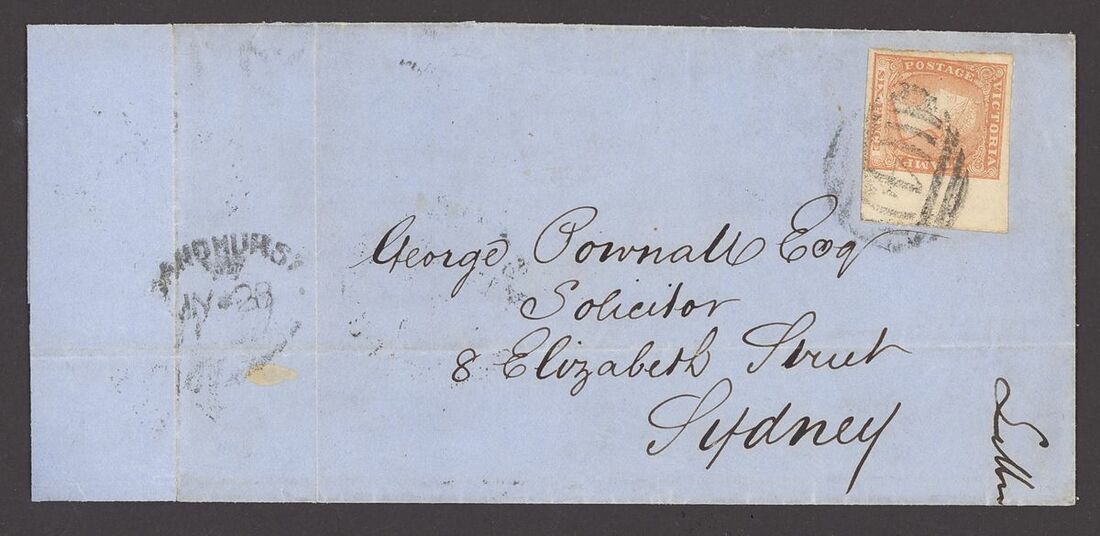 POSTAGE
VICTORIA
SIXPENCE
George Pownall Esq
Solicitor
8 Elizabeth Street
Sydney